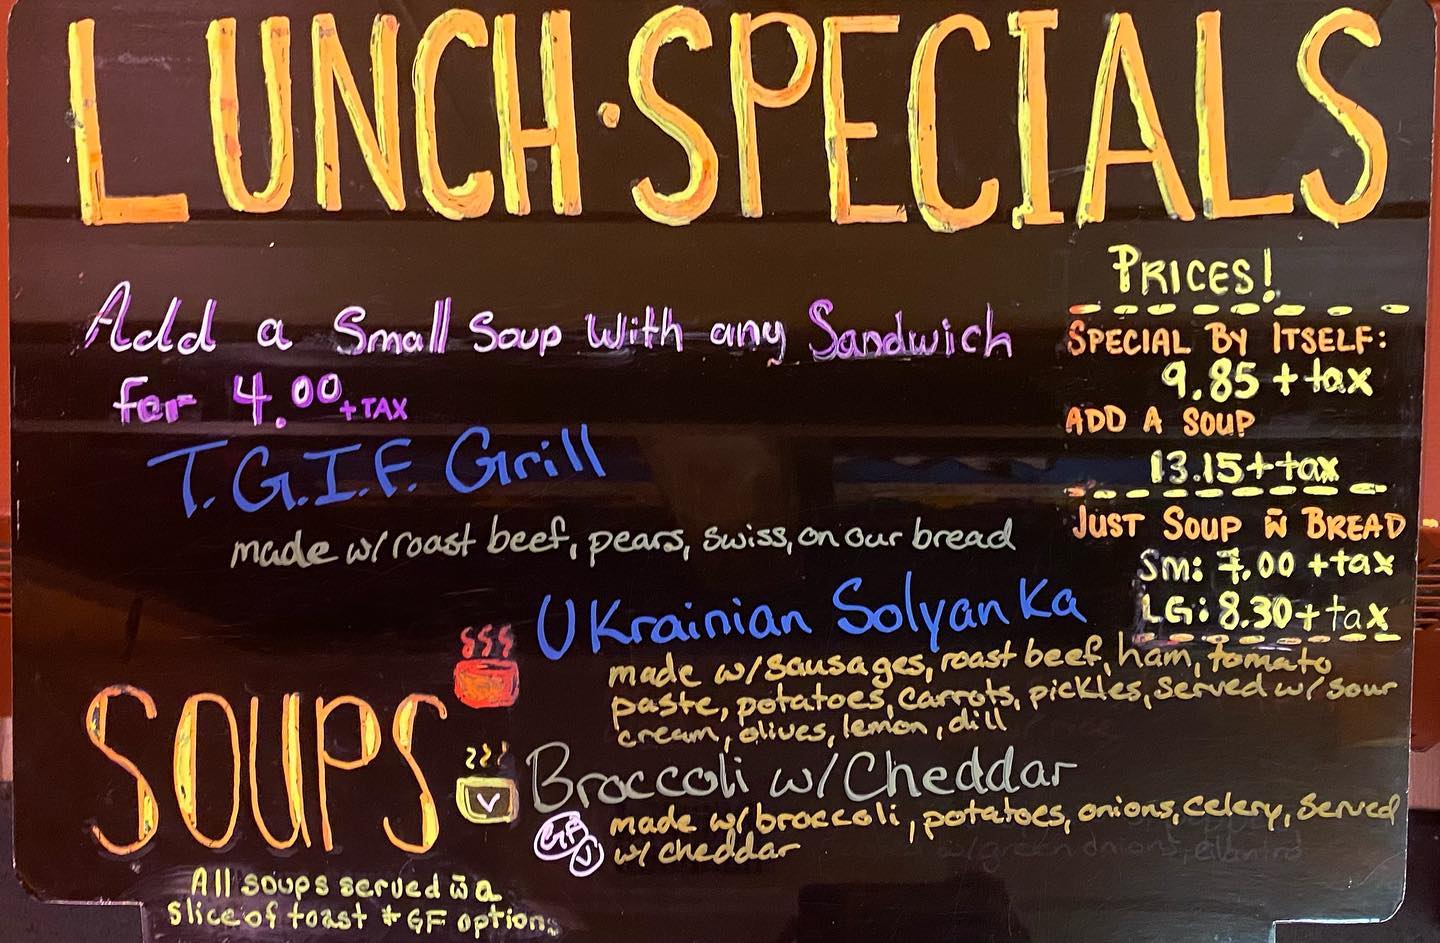 LUNCH · SPECIALS
Add a Small Soup with any Sandwich
for 4.00 + TAX
T.G.I.F. Grill
made w/ roast beef, pears, swiss, on our bread
PRICES!
SPECIAL BY ITSELF:
9.85 + tax
ADD A SOUP
13.15 + tax
JUST SOUP w̄ BREAD
SM: 7.00 + tax
LG: 8.30 + tax
SOUPS
Ukrainian Solyanka
made w/ sausages, roast beef, ham, tomato
paste, potatoes, carrots, pickles, served w/ sour
cream, olives, lemon, dill
V
Broccoli w/ Cheddar
GF
V
made w/ broccoli, potatoes, onions, celery, served
w/ cheddar
All soups served w̄ a
slice of toast * GF option